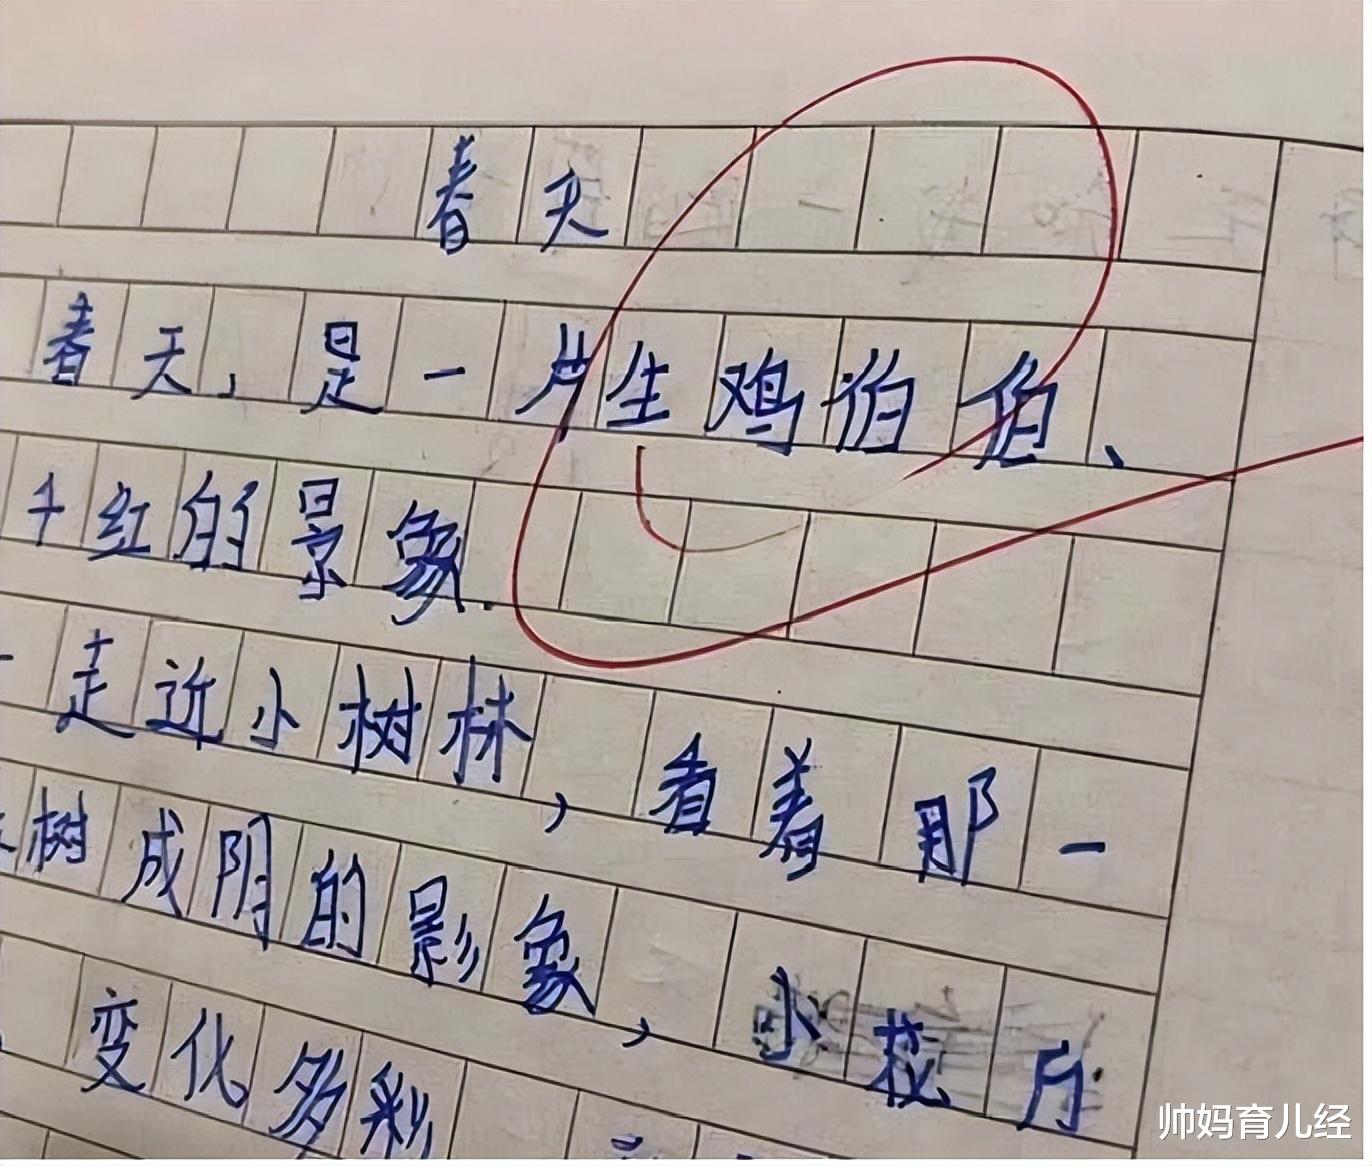 春天
春天,是一片生鸡伯伯、
千红的景象.
走近小树林,看着那一
树成阴的影象,小校
变化多彩
帅妈育儿经